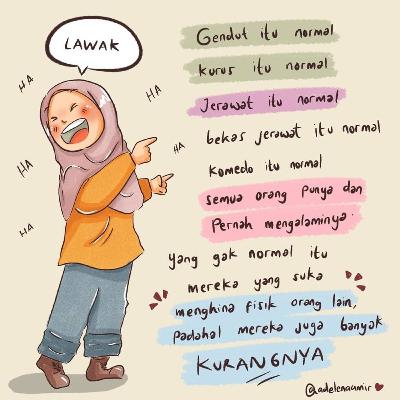 LAWAK
HA
HA
HA
HA
HA
Gendut itu normal
kurus itu normal
Jerawat itu normal
bekas jerawat itu normal
komedo itu normal
semua orang Punya dan
Pernah mengalaminya.
yang gak normal itu
mereka yang suka
menghina fisik orang lain,
Padahal mereka juga banyak
KURANGNYA
@adelenaamir